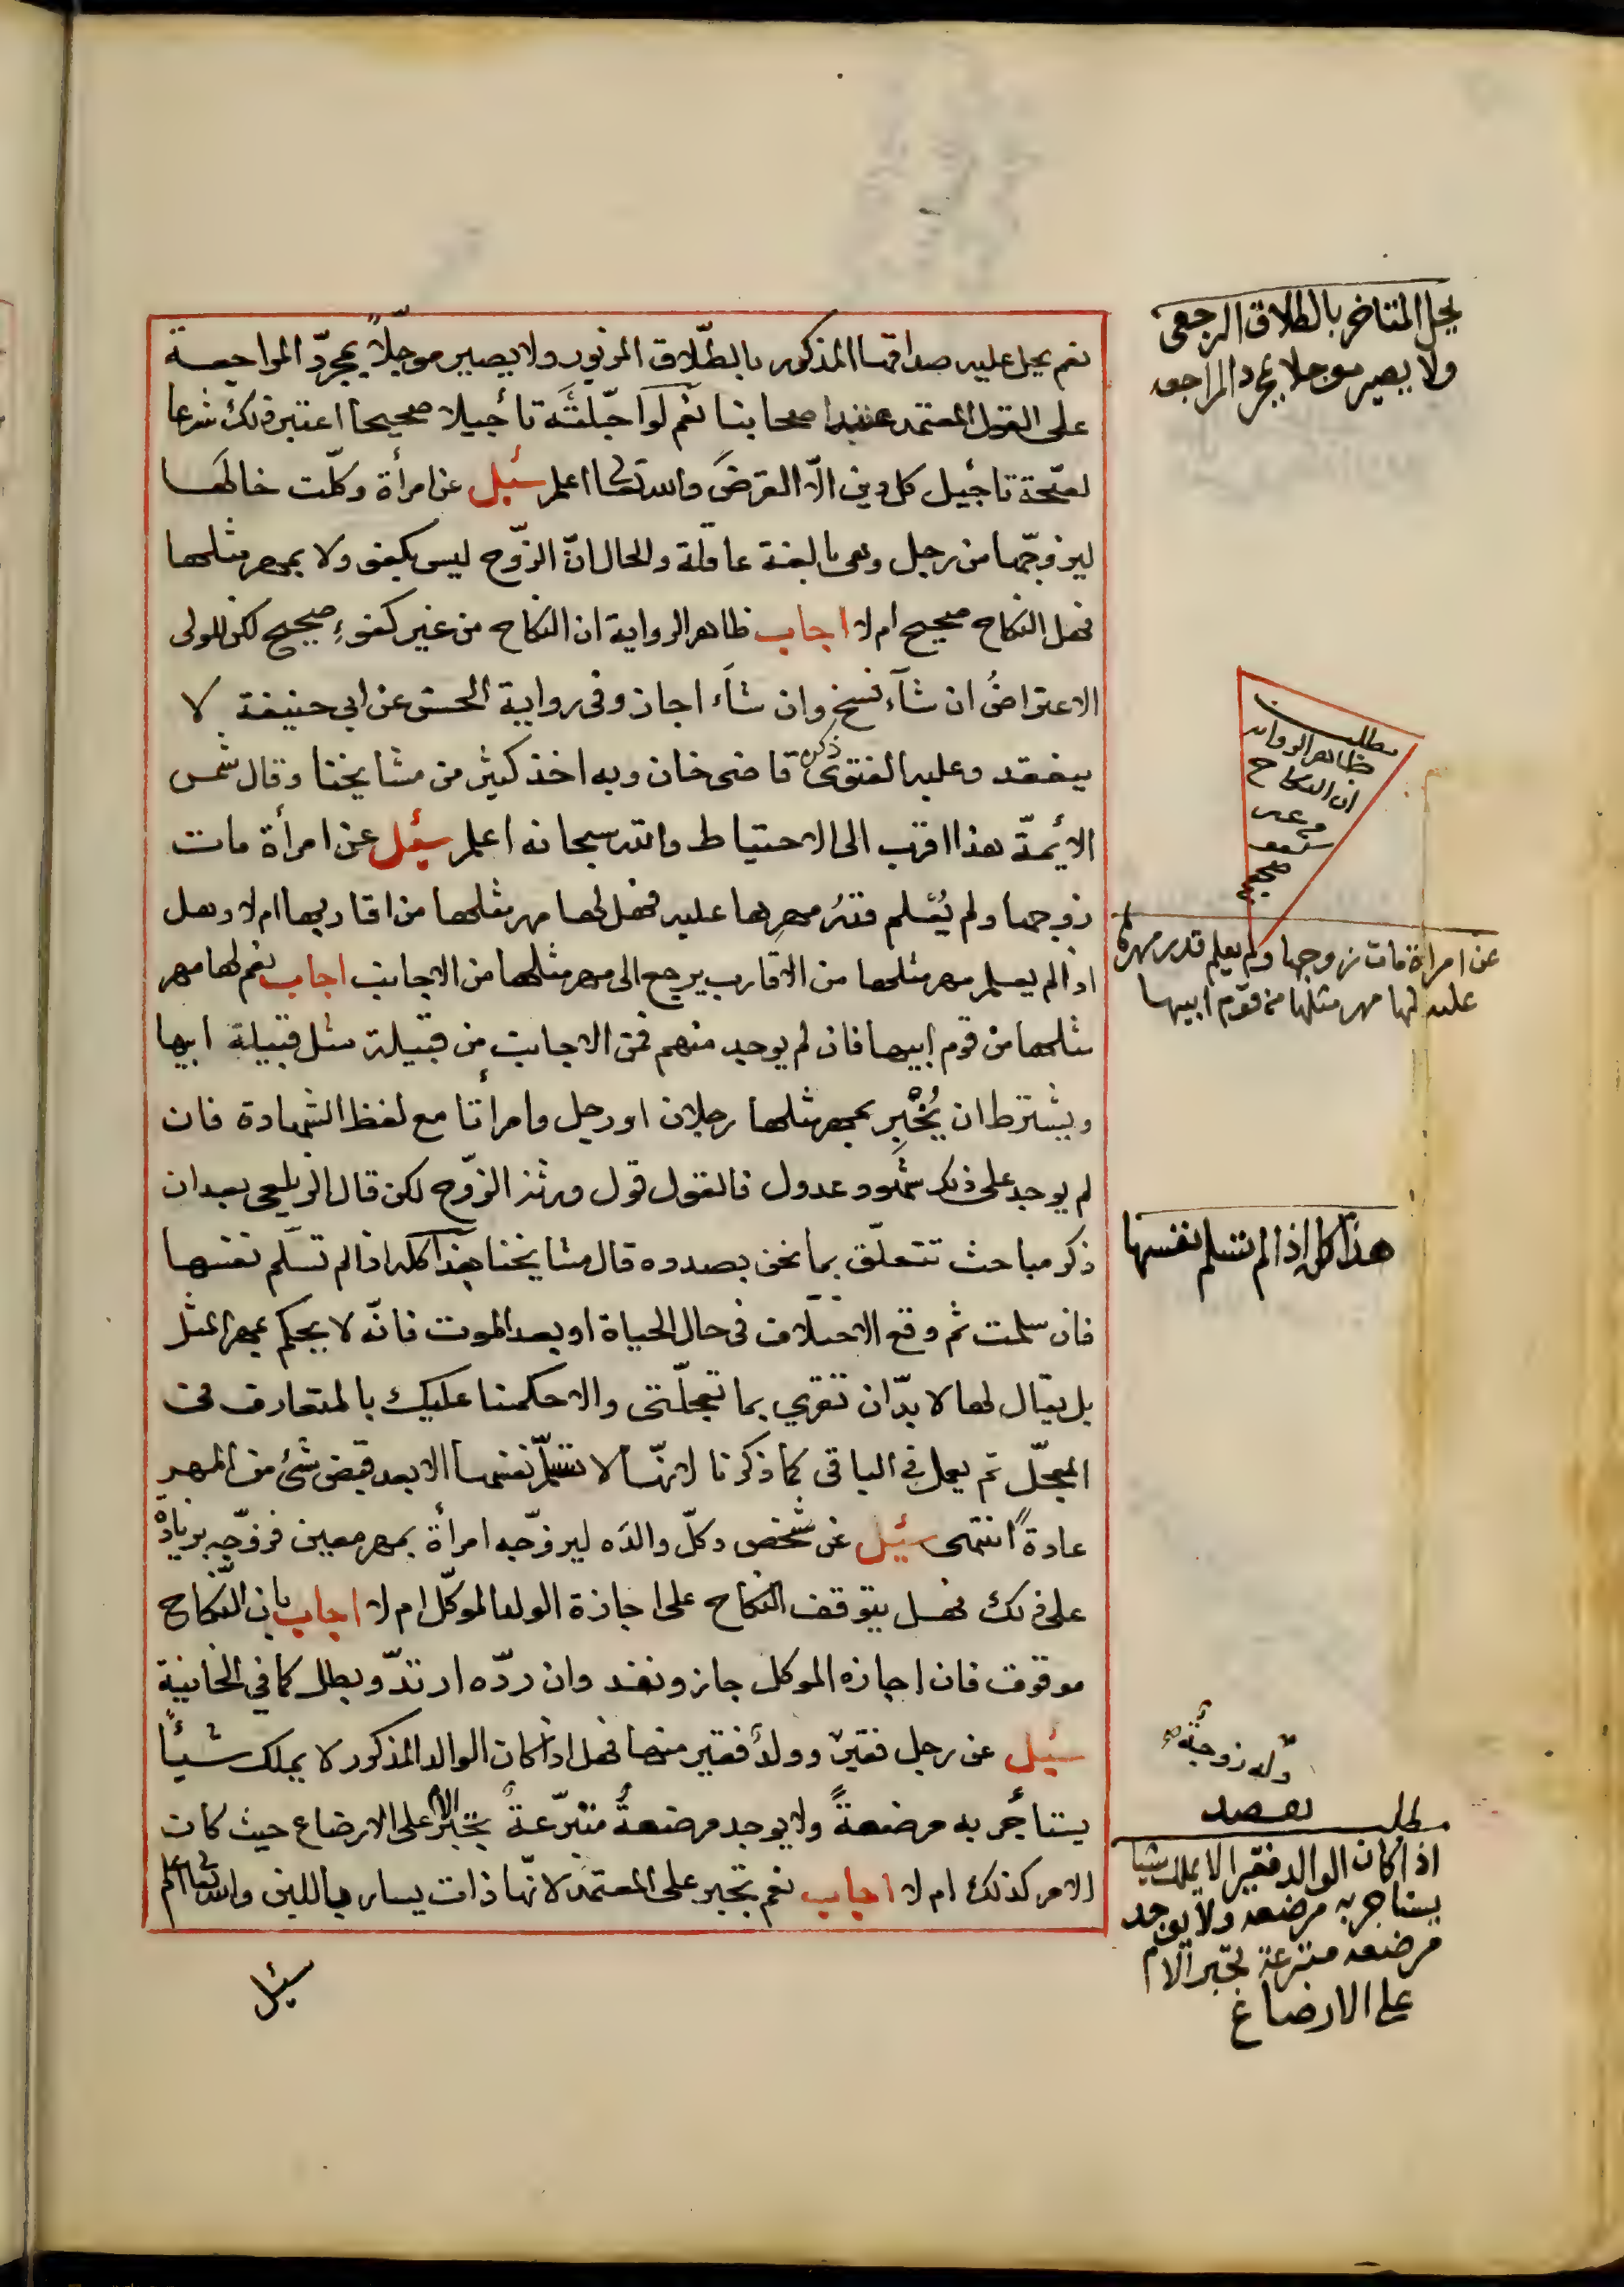 نعم يحل عليه صداقها المذكور بالطّلاق المزبور ولا يصير موجّلاً بمجرّد المراجعة
على القول المعتمد عند اصحابنا نعم لو اجّلته تأجيلا صحيحا اعتبر ذلك شرعا
لصحّة تاجيل كل دين الّا القرض والله تعالى اعلم سئل عن امرأة وكلّت خالها
ليزوجّها من رجل وهى بالغة عاقلة والحال انّ الزّوج ليس بكفو ولا بمهر مثلها
فهل النكاح صحيح ام لا اجاب ظاهر الرواية ان النكاح من غير كفوءِ صحيح لكن للولى
الاعتراضُ ان شآء فسخ وان شآء اجاز وفى رواية الحسن عن ابى حنيفة لا
ينعقد وعليه الفتوى ذكره قاضى خان وبه اخذ كثير من مشايخنا وقال شمس
الأئمّة هذا اقرب الى الاحتياط والله سبحانه اعلم سئل عن امرأة مات
زوجها ولم يُعْلم قدرُ مهرِها عليه فهل لها مهر مثلها من اقاربها ام لا وهل
اذا لم يعلم مهر مثلها من الاقارب يرجع الى مهر مثلها من الاجانب اجاب نعم لها مهر
مثلها من قوم ابيها فان لم يوجد منهم فمن الاجانب من قبيلة مثل قبيلة ابيها
ويشترط ان يُخْبِر بمهر مثلها رجلان او رجل وامرأتا مع لفظ الشهادة فان
لم يوجد على ذلك شهود عدول فالقول قول ورثة الزّوج لكن قال الزيلعى بعد ان
ذكر مباحث تتعلّق بما نحن بصدده قال مشايخنا هذا كله اذا لم تسلّم نفسها
فان سلمت ثم وقع الاختلاف فى حال الحياة او بعد الموت فانّه لا يحكم بمهر المثل
بل يقال لها لا بدّ ان تقري بما تعجلّتى والا حكمنا عليك بالمتعارف فى
المعجّل ثم يعمل فى الباقى كما ذكرنا لانّها لا تسلّم نفسها الا بعد قبض شئ من المهر
عادةً انتهى سئيل عن شخص وكلّ والدَه ليزوّجه امرأة بمهر معين فزوّجه بزيادة
على ذلك فهل يتوقف النكاح على اجازة الولد الموكّل ام لا اجاب بان النّكاح
موقوف فان اجازه الموكل جاز ونفذ وان ردّه ارتدّ وبطل كما فى الخانية
سئيل عن رجل فقير وولدٌ فقير منها فهل اذا كان الوالد المذكور لا يملك شيأً
يستأجر به مرضعةً ولا يوجد مرضعةٌ متبرّعةٌ تجبر الام على الارضاع حيث كان
الامر كذلك ام لا اجاب نعم تجبر على المعتمد لانّها ذات يسار باللبن والله تعالى اعلم
سئيل
يحل المتاخر بالطلاق الرجعى
ولا يصير موجلا بمجرد المراجعه
مطلب
ظاهر الروايه
ان النكاح
من غير
كفو
صحيح
عن امراة مات زوجها ولم يعلم قدر مهرها
عليه لها مهر مثلها من قوم ابيها
هذا كله اذا لم تسلم نفسها
وله زوجة
مطلب
اذا كان الوالد فقيرا لا يملك شيا
يستاجر به مرضعه ولا يوجد
مرضعه متبرعة تجبر الام
على الارضاع